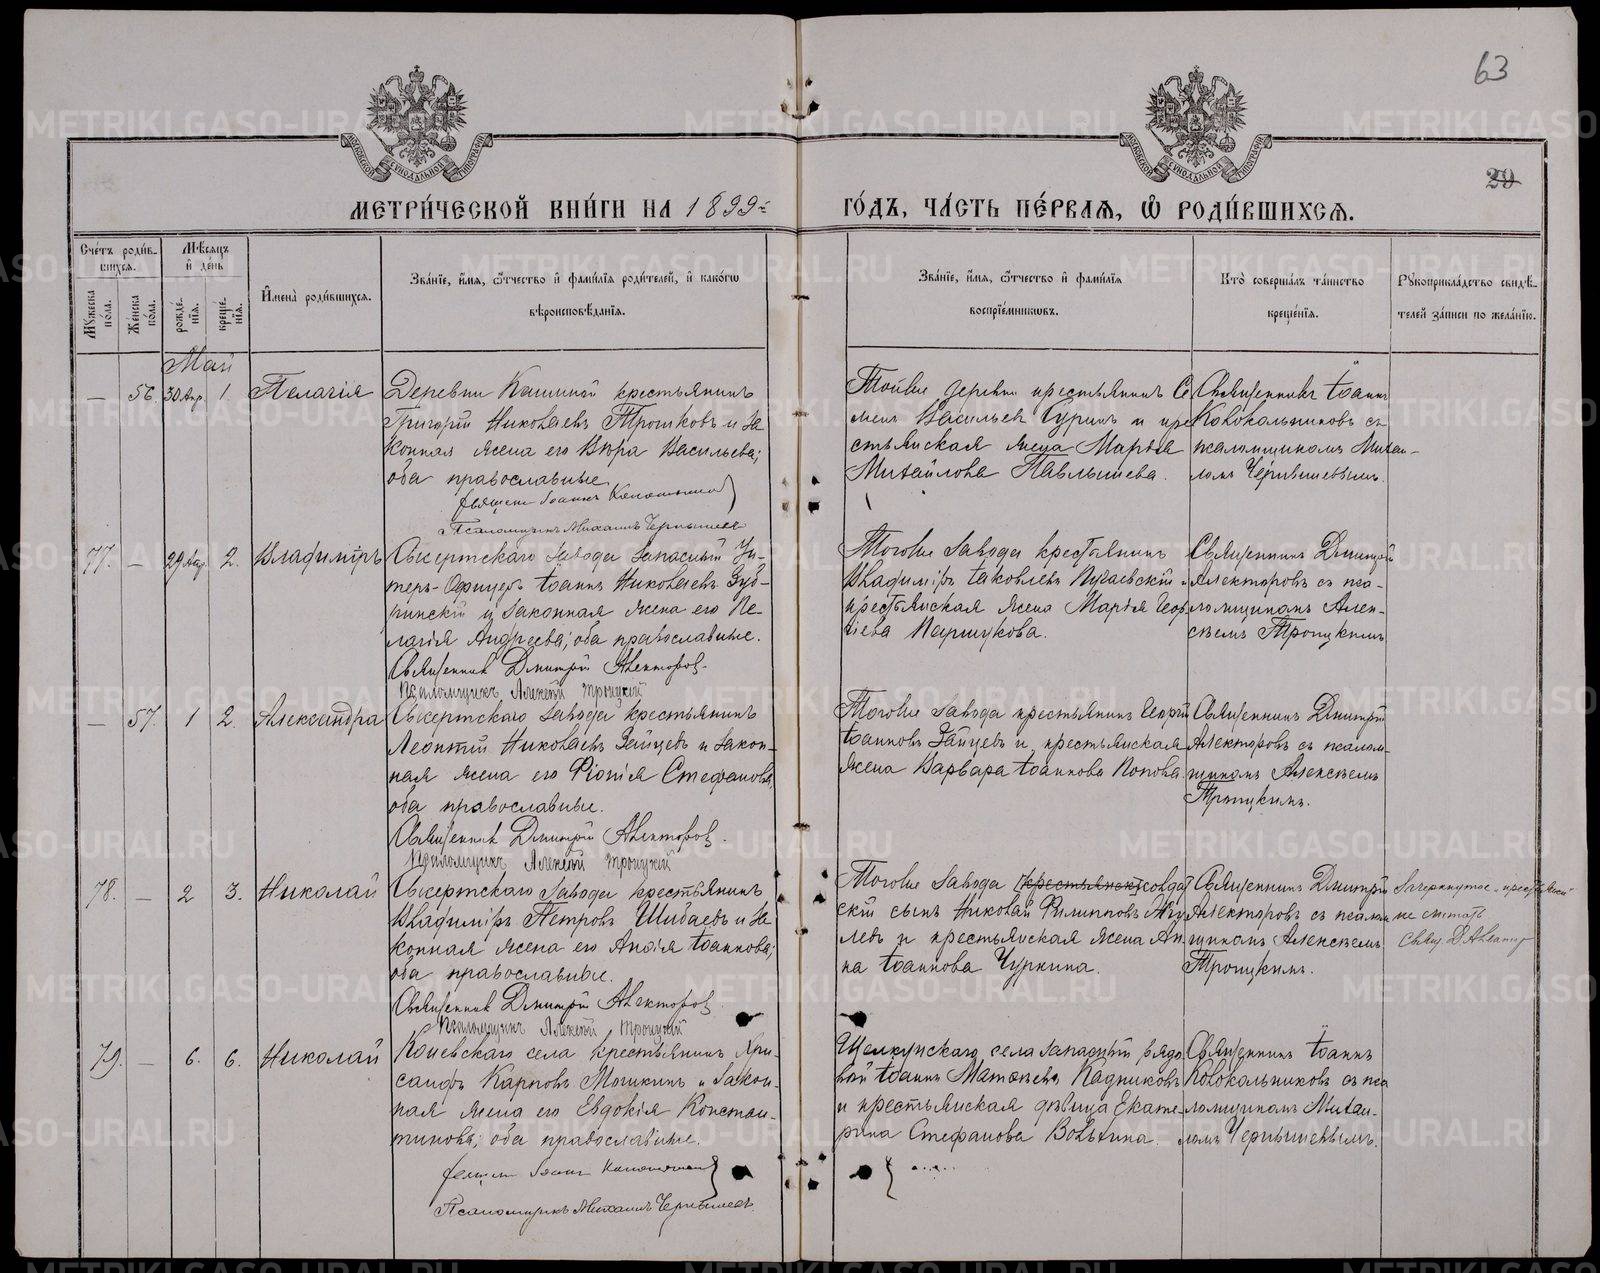 63
29
МЕТРИ́ЧЕСКОЙ КНИ́ГИ НА 1899 ГО́ДЪ, ЧА́СТЬ ПЕ́РВАЯ, Ѡ҆ РОДИ́ВШИХСЯ.
Сче́тъ роди́в-
шихся.
Мѣ́сяцъ
и҆ де́нь
Му́жеска по́ла.
Же́нска по́ла.
рожде́нїя.
креще́нїя.
И҆мена̀ роди́вшихся.
Зва́нїе, и҆́мя, ѻ҆́тчество и҆ фами́лїя роди́телей, и҆ како́гѡ
вѣроисповѣ́данїя.
Зва́нїе, и҆́мя, ѻ҆́тчество и҆ фами́лїя
воспрїе́мниковъ.
Кто̀ соверша́лъ та́инство
креще́нїя.
Рукоприкла́дство свидѣ́-
телей за́писи по жела́нїю.
Май
— 56. 30 Апр. 1. Пелагія
Деревни Кашиной крестьянинъ
Григорій Николаевъ Трошковъ и за-
конная жена его Вѣра Васильева;
оба православные.
Псаломщикъ Михаилъ Чернышевъ
Тойже деревни крестьянинъ Се
менъ Васильевъ Чуринъ и кре
стьянская жена Марѳа
Михайлова Павлышева.
Священникъ Іоаннъ
Колокольниковъ съ
псаломщикомъ Михаи-
ломъ Чернышевымъ.
77. — 29 Апр. 2. Владиміръ
Сысертскаго завода запасный Ун-
теръ-Офицеръ Іоаннъ Николаевъ Зуб-
чинскій и законная жена его Пе-
лагія Андреева; оба православные.
Священник Дмитрій Алекторов.
Псаломщикъ Алексѣй Троицкій
Тогоже завода крестьянинъ
Владиміръ Іаковлевъ и
крестьянская жена Марія Геор
гіева Паршукова.
Священникъ Дмитрій
Алекторовъ съ пса-
ломщикомъ Алек-
сѣемъ Троицкимъ
— 57. 1 2. Александра
Сысертскаго завода крестьянинъ
Леонтій Николаевъ Зайцевъ и закон-
ная жена его Ріонія Стефанова;
оба православные.
Священник Дмитрій Алекторов.
Псаломщикъ Алексѣй Троицкій
Тогоже завода крестьянинъ Георгій
Іоанновъ Зайцевъ и крестьянская
жена Варвара Іоаннова Попова
Священникъ Дмитрій
Алекторовъ съ псалом-
щикомъ Алексѣемъ
Троицкимъ.
78. — 2 3. Николай
Сысертскаго завода крестьянинъ
Владиміръ Петровъ Шибаевъ и за-
конная жена его Анѳія Іоаннова;
оба православные.
Священник Дмитрій Алекторов
Псаломщикъ Алексѣй Троицкій
Тогоже завода крестьянск солдат
скій сынъ Николай Филипповъ
левъ и крестьянская жена Ан
на Іоаннова Чуркина.
Священникъ Дмитрій
Алекторовъ съ псалом
щикомъ Алексѣемъ
Троицкимъ.
Зачеркнутое „крестьянск“
не считать
Свящ. Д. Алектор
79. — 6. 6. Николай
Коневскаго села крестьянинъ Хри-
санфъ Карповъ Мошкинъ и закон-
ная жена его Евдокія Констан-
тинова; оба православные.
Псаломщикъ Михаилъ Чернышевъ
Щелкунскаго села запасный рядо
вой Іоаннъ Матѳѣевъ Кадниковъ
и крестьянская дѣвица Екате-
рина Стефанова Волхина.
Священникъ Іоаннъ
Колокольниковъ съ пса
ломщикомъ Михаи-
ломъ Чернышевымъ.
METRIKI.GASO-URAL.RU